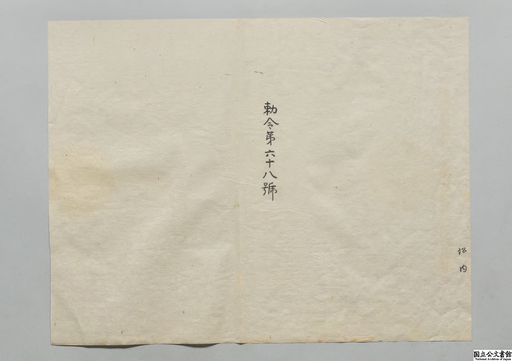 勅令第六十八號
内
国立公文書館
National Archives of Japan